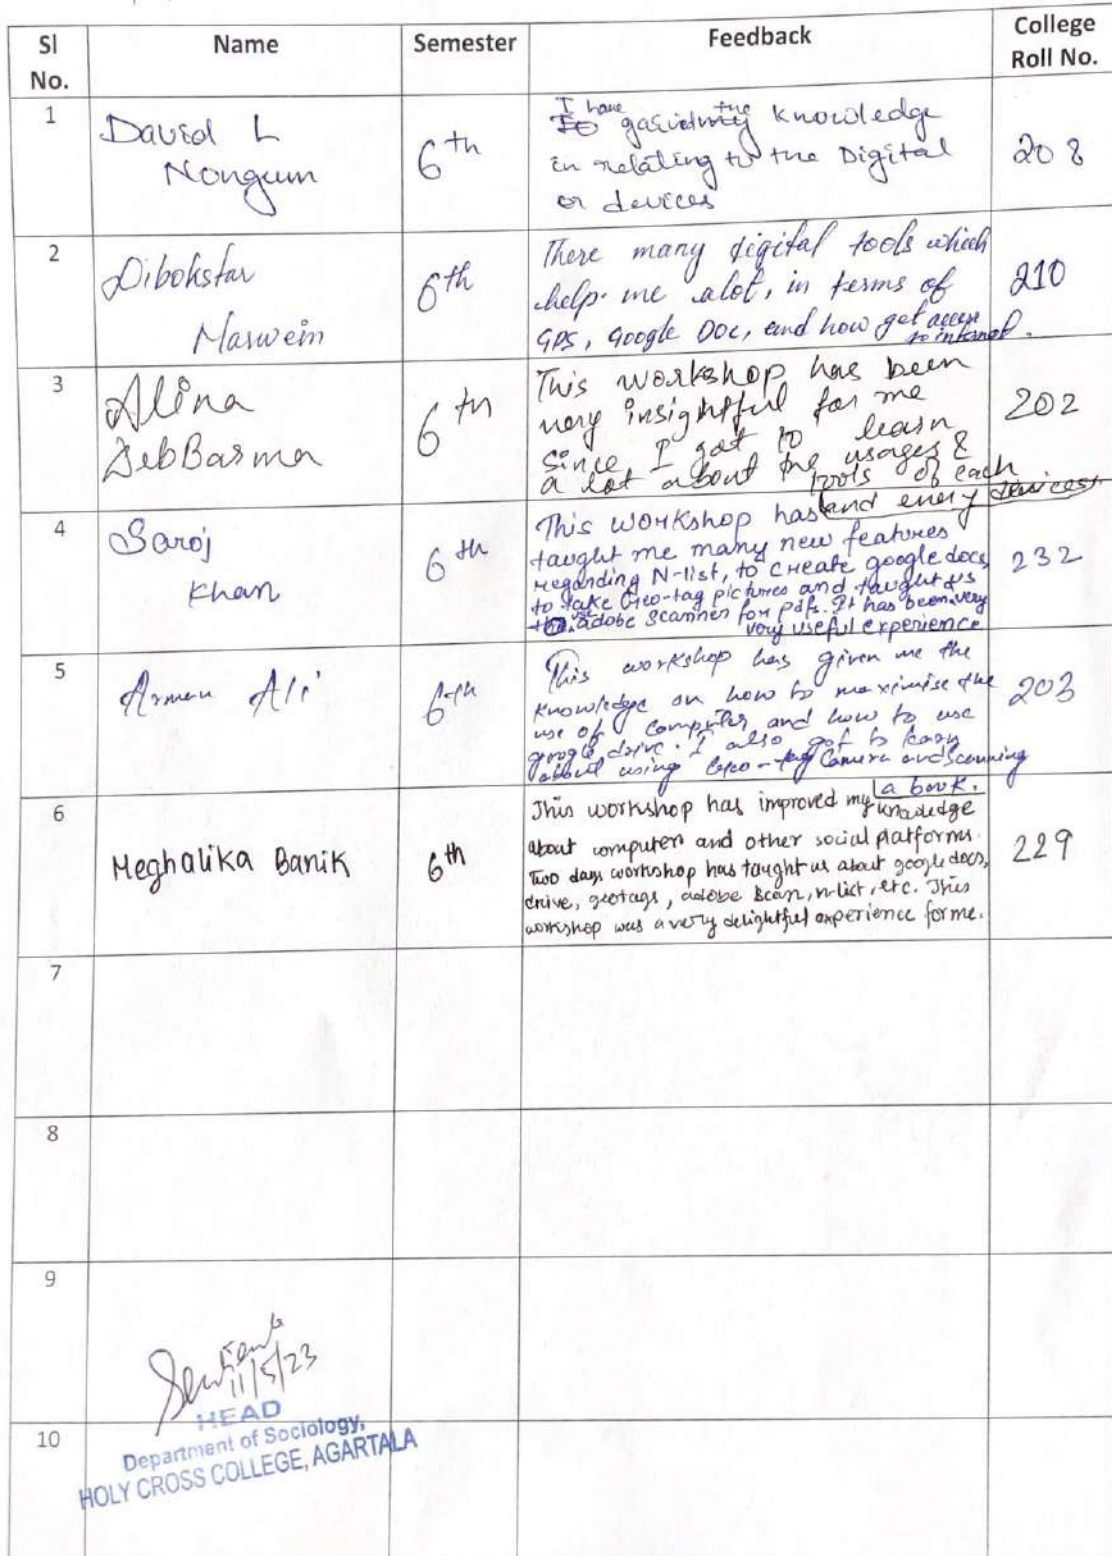 Sl No. Name Semester Feedback College Roll No.
1 David L Nongum 6th I have the knowledge
in relating to the Digital
or devices
208
2 Dibokstar Marwein 6th There many digital tools which
help me alot, in terms of
GPS, Google Doc, and how get access
to internet.
210
3 Alina DebBarma 6th This workshop has been
very insightful for me
since I got to learn
a lot about the usages &
tools of each
and every devices.
202
4 Saroj Khan 6th This workshop has
taught me many new features
regarding N-list, to create google docs,
to take Geo-tag pictures and taught us
adobe scanner for pdfs. It has been very
very useful experience
232
5 Arman Ali 6th This workshop has given me the
knowledge on how to maximise the
use of computer, and how to use
google drive. I also got to
about using Geo-tag Camera and scanning
a book.
203
6 Meghalika Banik 6th This workshop has improved my knowledge
about computers and other social platforms.
Two days workshop has taught us about google docs,
drive, geotags, adobe scan, n-list, etc. This
workshop was a very delightful experience for me.
229
7
8
9
11/5/23
HEAD
10
Department of Sociology,
HOLY CROSS COLLEGE, AGARTALA